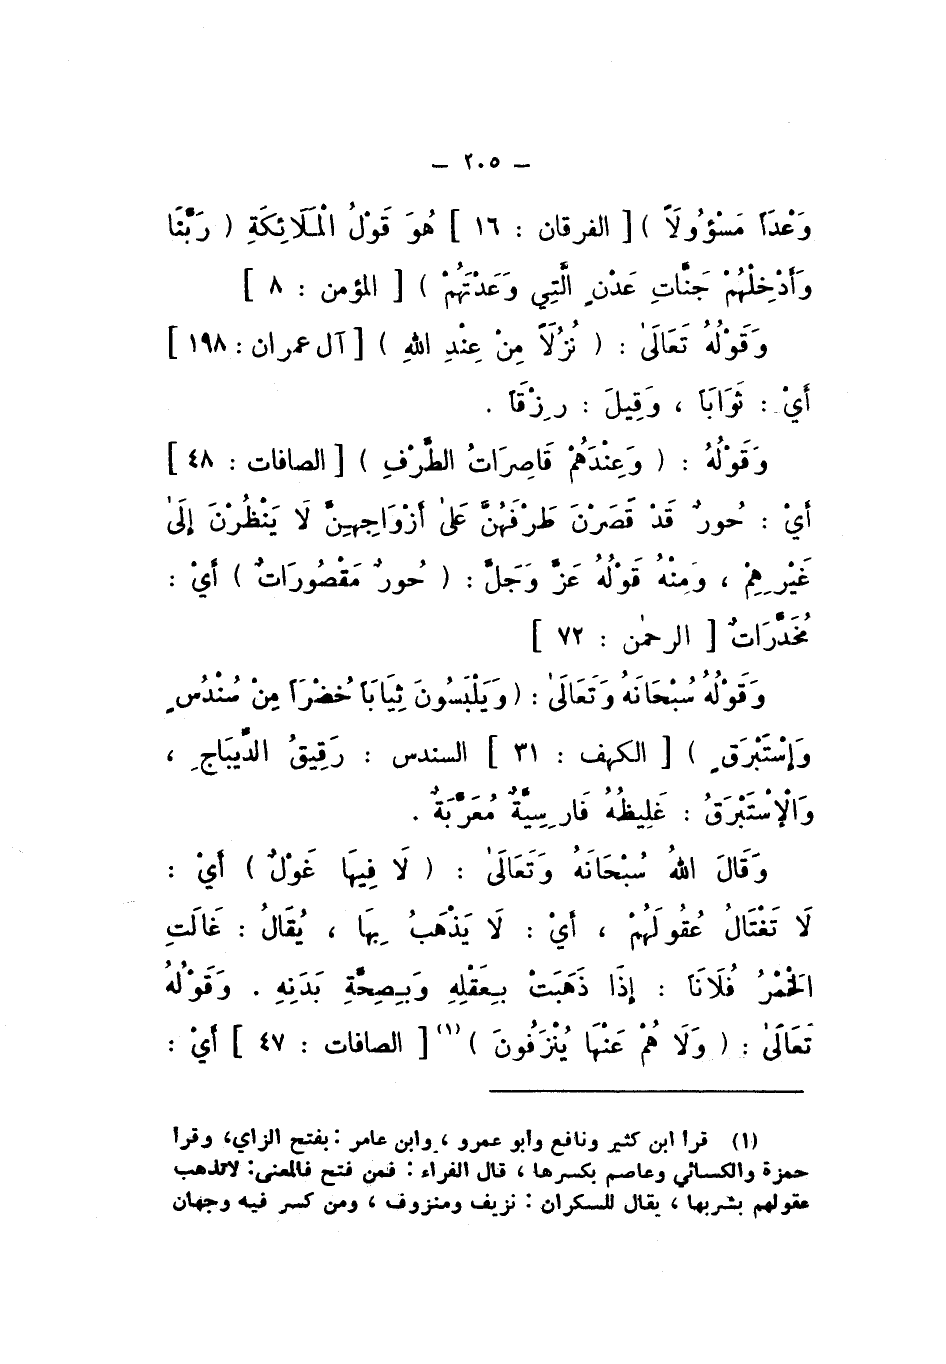 – ٢٠٥ –
وَعْدَاً مَسْؤُولَاً ) [ الفرقان : ١٦ ] هُوَ قَوْلُ الْمَلَائِكَةِ ( رَبَّنَا
وَأَدْخِلْهُمْ جَنَّاتِ عَدْنٍ الَّتِي وَعَدْتَهُمْ ) [ المؤمن : ٨ ]
وَقَوْلُهُ تَعَالَىٰ : ( نُزُلَاً مِنْ عِنْدِ اللهِ ) [ آل عمران : ١٩٨ ]
أَيْ : ثَوَابَاً ، وَقِيلَ : رِزْقَاً .
وَقَوْلُهُ : ( وَعِنْدَهُمْ قَاصِرَاتُ الطَّرْفِ ) [ الصافات : ٤٨ ]
أَيْ : حُورٌ قَدْ قَصَرْنَ طَرْفَهُنَّ عَلَىٰ أَزْوَاجِهِنَّ لَا يَنْظُرْنَ إِلَىٰ
غَيْرِهِمْ ، وَمِنْهُ قَوْلُهُ عَزَّ وَجَلَّ : ( حُورٌ مَقْصُورَاتٌ ) أَيْ :
مُخَدَّرَاتٌ [ الرحمٰن : ٧٢ ]
وَقَوْلُهُ سُبْحَانَهُ وَتَعَالَىٰ : ( وَيَلْبَسُونَ ثِيَابَاً خُضْرَاً مِنْ سُنْدُسٍ
وَإِسْتَبْرَقٍ ) [ الكهف : ٣١ ] السندس : رَقِيقُ الدِّيبَاجِ ،
وَالْإِسْتَبْرَقُ : غَلِيظُهُ فَارِسِيَّةٌ مُعَرَّبَةٌ .
وَقَالَ اللهُ سُبْحَانَهُ وَتَعَالَىٰ : ( لَا فِيهَا غَوْلٌ ) أَيْ :
لَا تَغْتَالُ عُقُولَهُمْ ، أَيْ : لَا يَذْهَبُ بِهَا ، يُقَالُ : غَالَتِ
الْخَمْرُ فُلَانَاً : إِذَا ذَهَبَتْ بِعَقْلِهِ وَبِصِحَّةِ بَدَنِهِ . وَقَوْلُهُ
تَعَالَىٰ : ( وَلَا هُمْ عَنْهَا يُنْزَفُونَ )(١) [ الصافات : ٤٧ ] أَيْ :
(١) قرأ ابن كثير ونافع وأبو عمرو ، وابن عامر : بفتح الزاي، وقرأ
حمزة والكسائي وعاصم بكسرها ، قال الفراء : فمن فتح فالمعنى: لاتذهب
عقولهم بشربها ، يقال للسكران : نزيف ومنزوف ، ومن كسر فيه وجهان